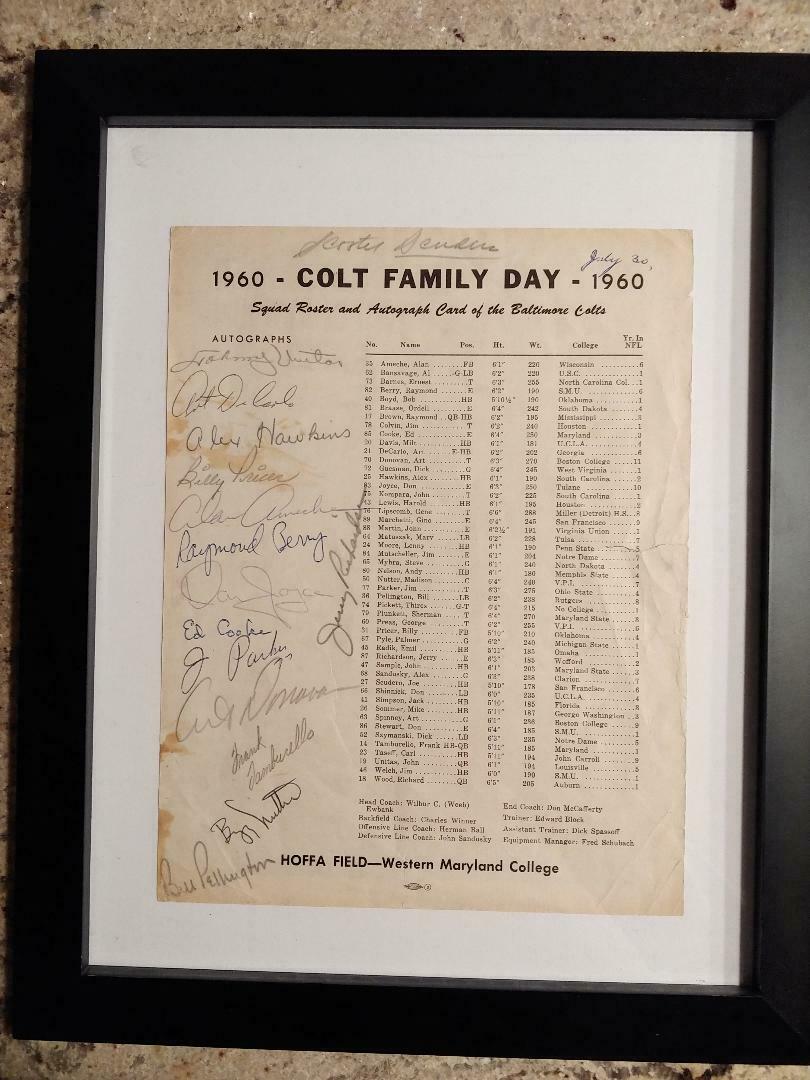 Scooter Scudero
July 30,
1960 - COLT FAMILY DAY - 1960
Squad Roster and Autograph Card of the Baltimore Colts
AUTOGRAPHS
Johnny Unitas
Art DeCarlo
Alex Hawkins
Billy Pricer
Alan Ameche
Raymond Berry
Don Joyce
Jerry Richardson
Ed Cooke
J Parker
Art Donovan
Frank Tamburello
Buzz Nutter
Bill Pellington
No. Name Pos. Ht. Wt. College Yr. In NFL
35 Ameche, Alan FB 6'1" 220 Wisconsin 6
62 Bansavage, Al G-LB 6'2" 220 U.S.C. 1
73 Barnes, Ernest T 6'3" 255 North Carolina Col. 1
82 Berry, Raymond E 6'2" 190 S.M.U. 6
40 Boyd, Bob HB 5'10½" 190 Oklahoma 1
81 Braase, Ordell E 6'4" 242 South Dakota 4
17 Brown, Raymond QB-HB 6'2" 195 Mississippi 3
78 Colvin, Jim T 6'2" 240 Houston 1
85 Cooke, Ed E 6'4" 250 Maryland 3
20 Davis, Milt HB 6'1" 181 U.C.L.A. 4
21 DeCarlo, Art E-HB 6'2" 202 Georgia 6
70 Donovan, Art T 6'3" 270 Boston College 11
72 Guesman, Dick G 6'4" 245 West Virginia 1
25 Hawkins, Alex HB 6'1" 190 South Carolina 2
83 Joyce, Don E 6'3" 250 Tulane 10
75 Kompara, John T 6'2" 225 South Carolina 1
43 Lewis, Harold HB 6'1" 195 Houston 2
76 Lipscomb, Gene T 6'6" 288 Miller (Detroit) H.S. 8
89 Marchetti, Gino E 6'4" 245 San Francisco 9
88 Martin, John E 6'2½" 191 Virginia Union 1
64 Matuszak, Marv LB 6'2" 228 Tulsa 7
24 Moore, Lenny HB 6'1" 190 Penn State 5
84 Mutscheller, Jim E 6'1" 204 Notre Dame 7
65 Myhra, Steve G 6'1" 240 North Dakota 4
80 Nelson, Andy HB 6'1" 180 Memphis State 4
50 Nutter, Madison C 6'4" 240 V.P.I. 7
77 Parker, Jim T 6'3" 275 Ohio State 4
36 Pellington, Bill LB 6'2" 238 Rutgers 8
74 Pickett, Thirex G-T 6'4" 215 No College 1
79 Plunkett, Sherman T 6'4" 270 Maryland State 3
60 Preas, George T 6'2" 255 V.P.I. 6
31 Pricer, Billy FB 5'10" 210 Oklahoma 4
67 Pyle, Palmer G 6'2" 240 Michigan State 1
45 Radik, Emil HB 5'11" 185 Omaha 1
87 Richardson, Jerry E 6'3" 185 Wofford 2
47 Sample, John HB 6'1" 203 Maryland State 3
68 Sandusky, Alex G 6'3" 238 Clarion 7
27 Scudero, Joe HB 5'10" 178 San Francisco 6
66 Shinnick, Don LB 6'0" 235 U.C.L.A. 4
41 Simpson, Jack HB 5'10" 185 Florida 3
26 Sommer, Mike HB 5'11" 187 George Washington 3
63 Spinney, Art G 6'1" 236 Boston College 9
86 Stewart, Don E 6'4" 185 S.M.U. 1
52 Szymanski, Dick LB 6'3" 235 Notre Dame 5
14 Tamburello, Frank HB-QB 5'11" 185 Maryland 1
23 Taseff, Carl HB 5'11" 194 John Carroll 9
19 Unitas, John QB 6'1" 194 Louisville 5
46 Welch, Jim HB 6'0" 190 S.M.U. 1
18 Wood, Richard QB 6'5" 205 Auburn 1
Head Coach: Wilbur C. (Weeb) Ewbank
Backfield Coach: Charles Winner
Offensive Line Coach: Herman Ball
Defensive Line Coach: John Sandusky
End Coach: Don McCafferty
Trainer: Edward Block
Assistant Trainer: Dick Spassoff
Equipment Manager: Fred Schubach
HOFFA FIELD—Western Maryland College